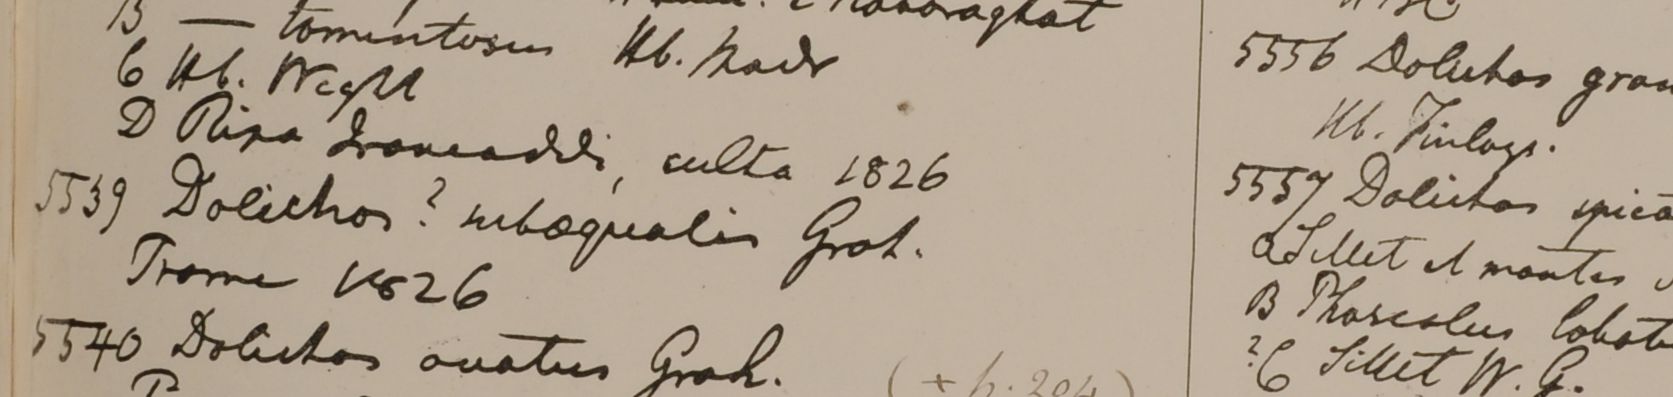 B — tomentosus Hb. Madr
C Hb. Wight
D Ripa Irawaddi, culta 1826
5539 Dolichos ? subaequalis Grah.
Prome 1826
5540 Dolichos ovatus Grah.
(+ p. 204)
5556 Dolichos
Hb. Finlays.
5557 Dolichos
a Sillet et montes
B Phaseolus
? C Sillet W. G.